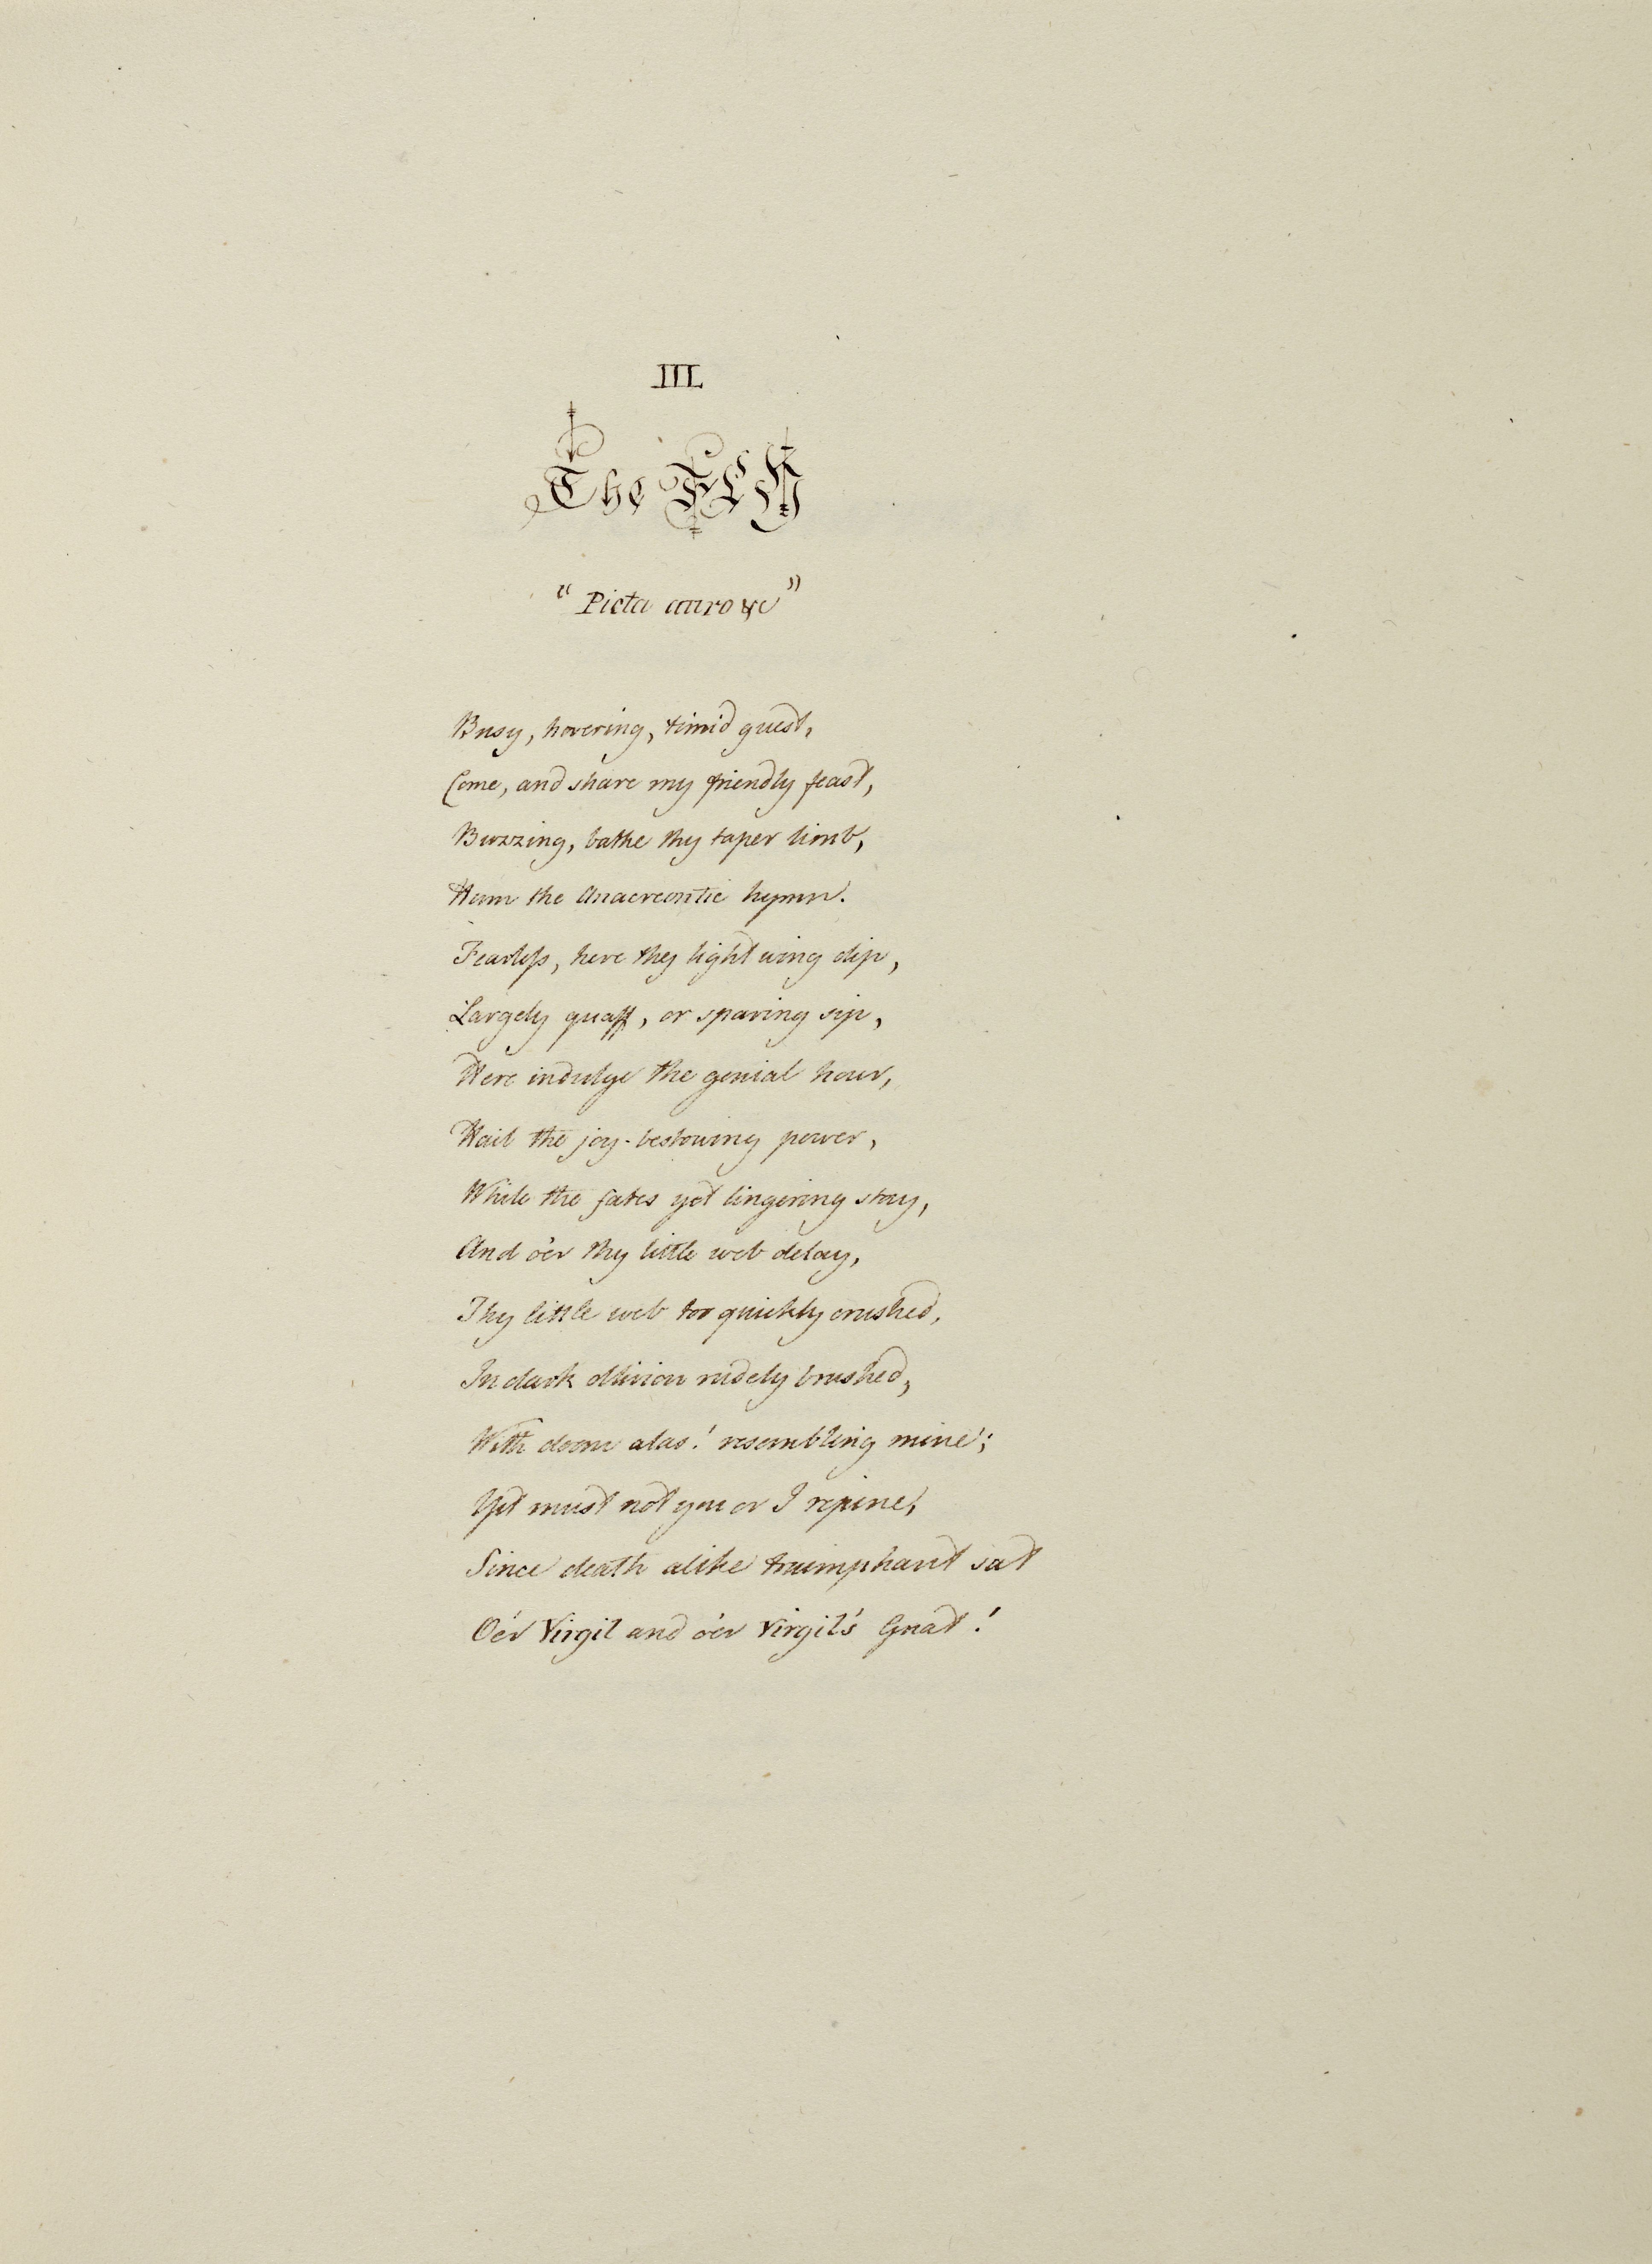 III.
The FLY
"Picta auro &c"
Busy, hovering, timid guest,
Come, and share my friendly feast,
Buzzing, bathe thy taper limb,
Hum the Anacreontic hymn.
Fearless, here thy light wing dip,
Largely quaff, or sparing sip,
Here indulge the genial hour,
Hail the joy-bestowing power,
While the fates yet lingering stay,
And o'er thy little web delay,
Thy little web too quickly crushed,
In dark oblivion rudely brushed,
With doom alas! resembling mine;
Yet must not you or I repine,
Since death alike truimphant sat
O'er Virgil and o'er Virgil's Gnat!